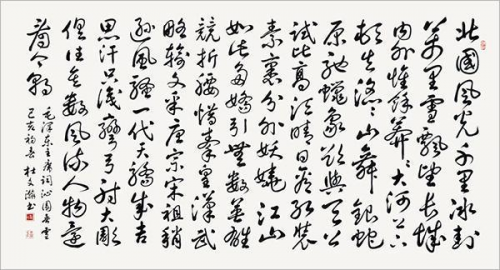 北國風光千里冰封
萬里雪飄望長城
內外惟餘莽々大河上下
頓失滔々山舞銀蛇
原馳蠟象欲與天公
試比高須晴日看紅裝
素裹分外妖嬈江山
如此多嬌引無數英雄
競折腰惜秦皇漢武
略輸文采唐宗宋祖稍
遜風騷一代天驕成吉
思汗只識彎弓射大雕
俱往矣數風流人物還
看今朝
毛澤東主席詞沁園春雪
己亥初春杜文瀚書